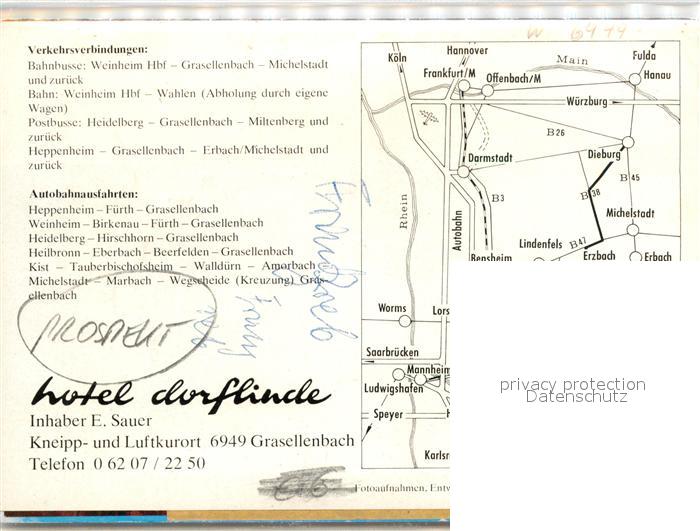 Verkehrsverbindungen:
Bahnbusse: Weinheim Hbf – Grasellenbach – Michelstadt
und zurück
Bahn: Weinheim Hbf – Wahlen (Abholung durch eigene
Wagen)
Postbusse: Heidelberg – Grasellenbach – Miltenberg und
zurück
Heppenheim – Grasellenbach – Erbach/Michelstadt und
zurück
Autobahnausfahrten:
Heppenheim – Fürth – Grasellenbach
Weinheim – Birkenau – Fürth – Grasellenbach
Heidelberg – Hirschhorn – Grasellenbach
Heilbronn – Eberbach – Beerfelden – Grasellenbach
Kist – Tauberbischofsheim – Walldürn – Amorbach
Michelstadt – Marbach – Wegscheide (Kreuzung) Gras-
ellenbach
PROSPEKT
hotel dorflinde
Inhaber E. Sauer
Kneipp- und Luftkurort 6949 Grasellenbach
Telefon 0 62 07 / 22 50
Hannover
Köln
Main
Fulda
Frankfurt/M
Offenbach/M
Hanau
Würzburg
B 26
Darmstadt
Dieburg
B 45
B 38
B 3
Rhein
Autobahn
Michelstadt
Lindenfels
B 47
Erzbach
Erbach
Bensheim
Worms
Lors
Saarbrücken
Mannheim
Ludwigshafen
Speyer
H
Karlsr
privacy protection
Datenschutz
Fotoaufnahmen, Entw